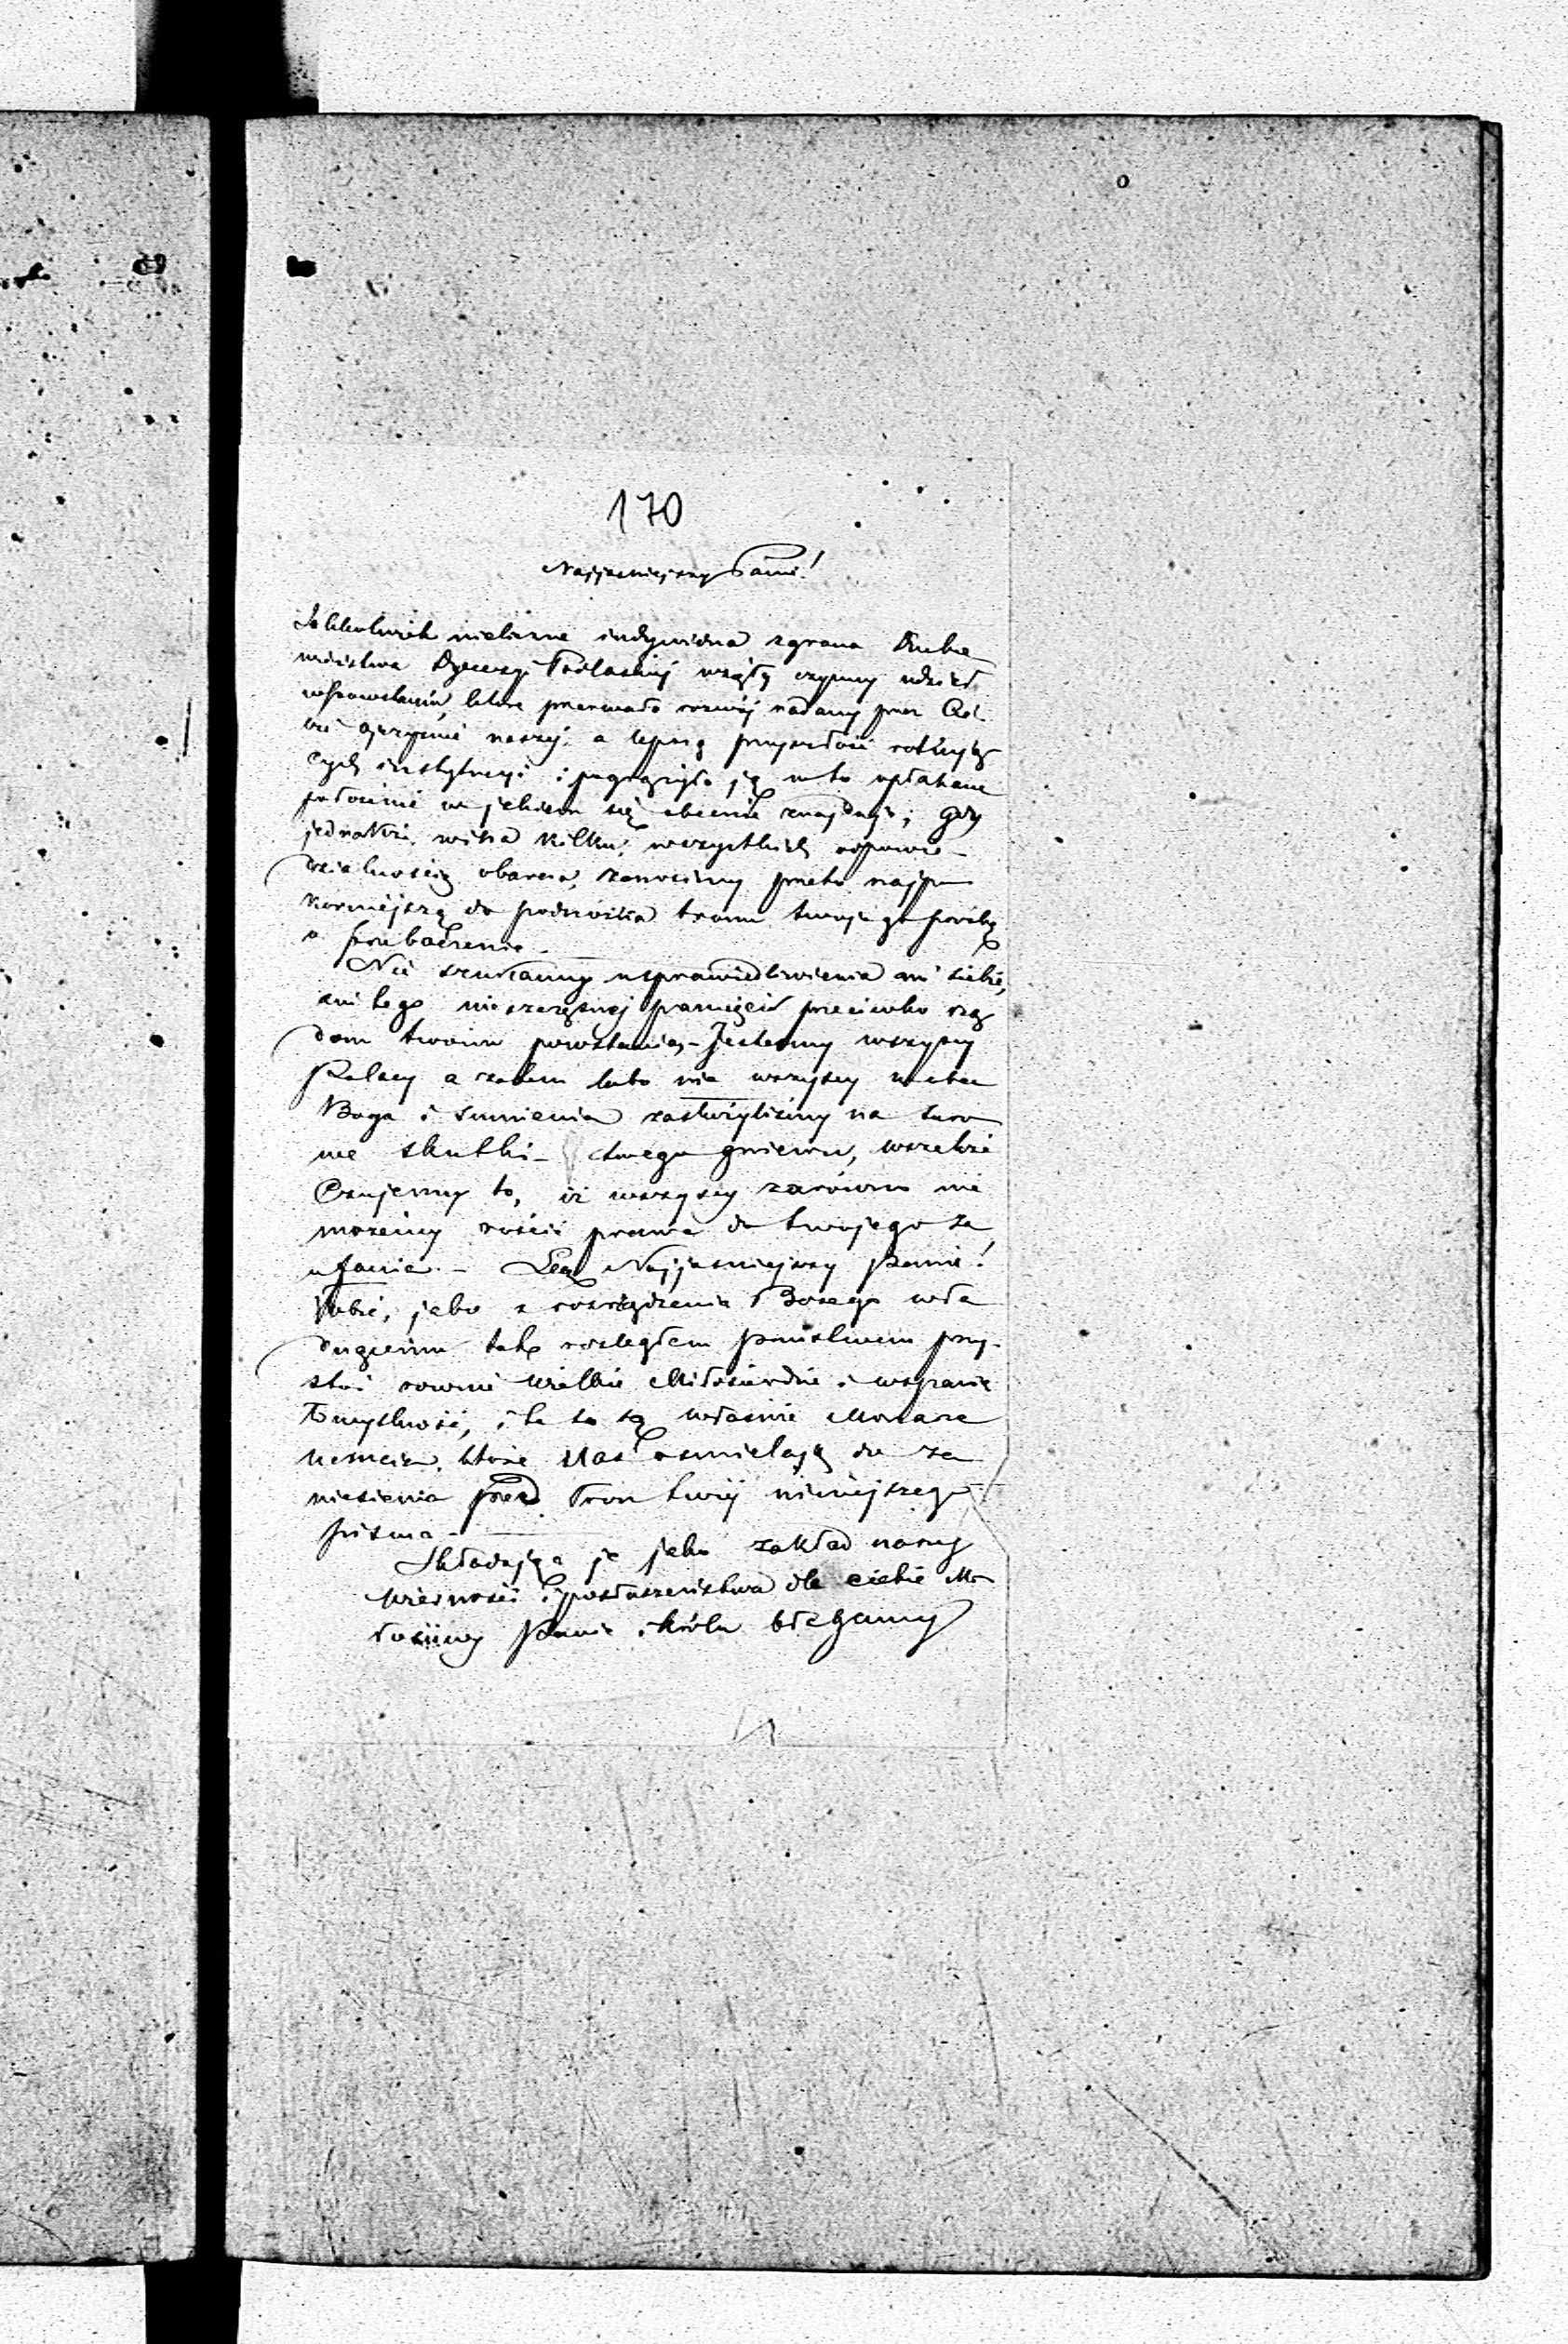 170
Najjaśniejszy Panie!
Jakkolwiek nieliczne indywidua z grona Ducho
wieństwa Dyecezyi Podlaskiej wzięły czynny udział
w powstaniu, które przerwało rozwój nadany przez
Ojczyznie naszéj, a lepszą przyszłość rokując
cych instytucyi i pogrążyło ją w to opłakane
położenie w jakiem się obecnie znajduje; gdy
jednakże wina kilku, wszystkich odpowie-
dzialnością obarcza, zanosimy przeto najpo
korniejszą do podnóżka tronu twojego prośbę
o przebaczenie. —
Nie szukamy usprawiedliwienia ani siebie,
ani tego nieszczęsnej pamięci przeciwko rzą
dom twoim powstania, — Jesteśmy wszyscy
Polacy a zatem lubo nie wszyscy wobec
Boga i sumienia zasłużyliśmy na suro
we skutki — twego gniewu, wszakże
Czujemy to, iż wszyscy zarówno nie
możemy rościć prawa do twojego za
ufania. — Lecz Najjaśniejszy Panie!
Tobie, jako z rozrządzenia Bożego wła
dnącemu tak rozległem państwem przy-
stoi równie wielkie Miłosierdzie i wspania
łomyślność, i te to są właśnie Monarsze
które Nas ośmielają do za
niesienia przed Tron twój niniejszego
pisma —
Składając je jako zakład naszej
wierności i posłuszeństwa dla ciebie Mi
łościwy Panie i Królu błagamy